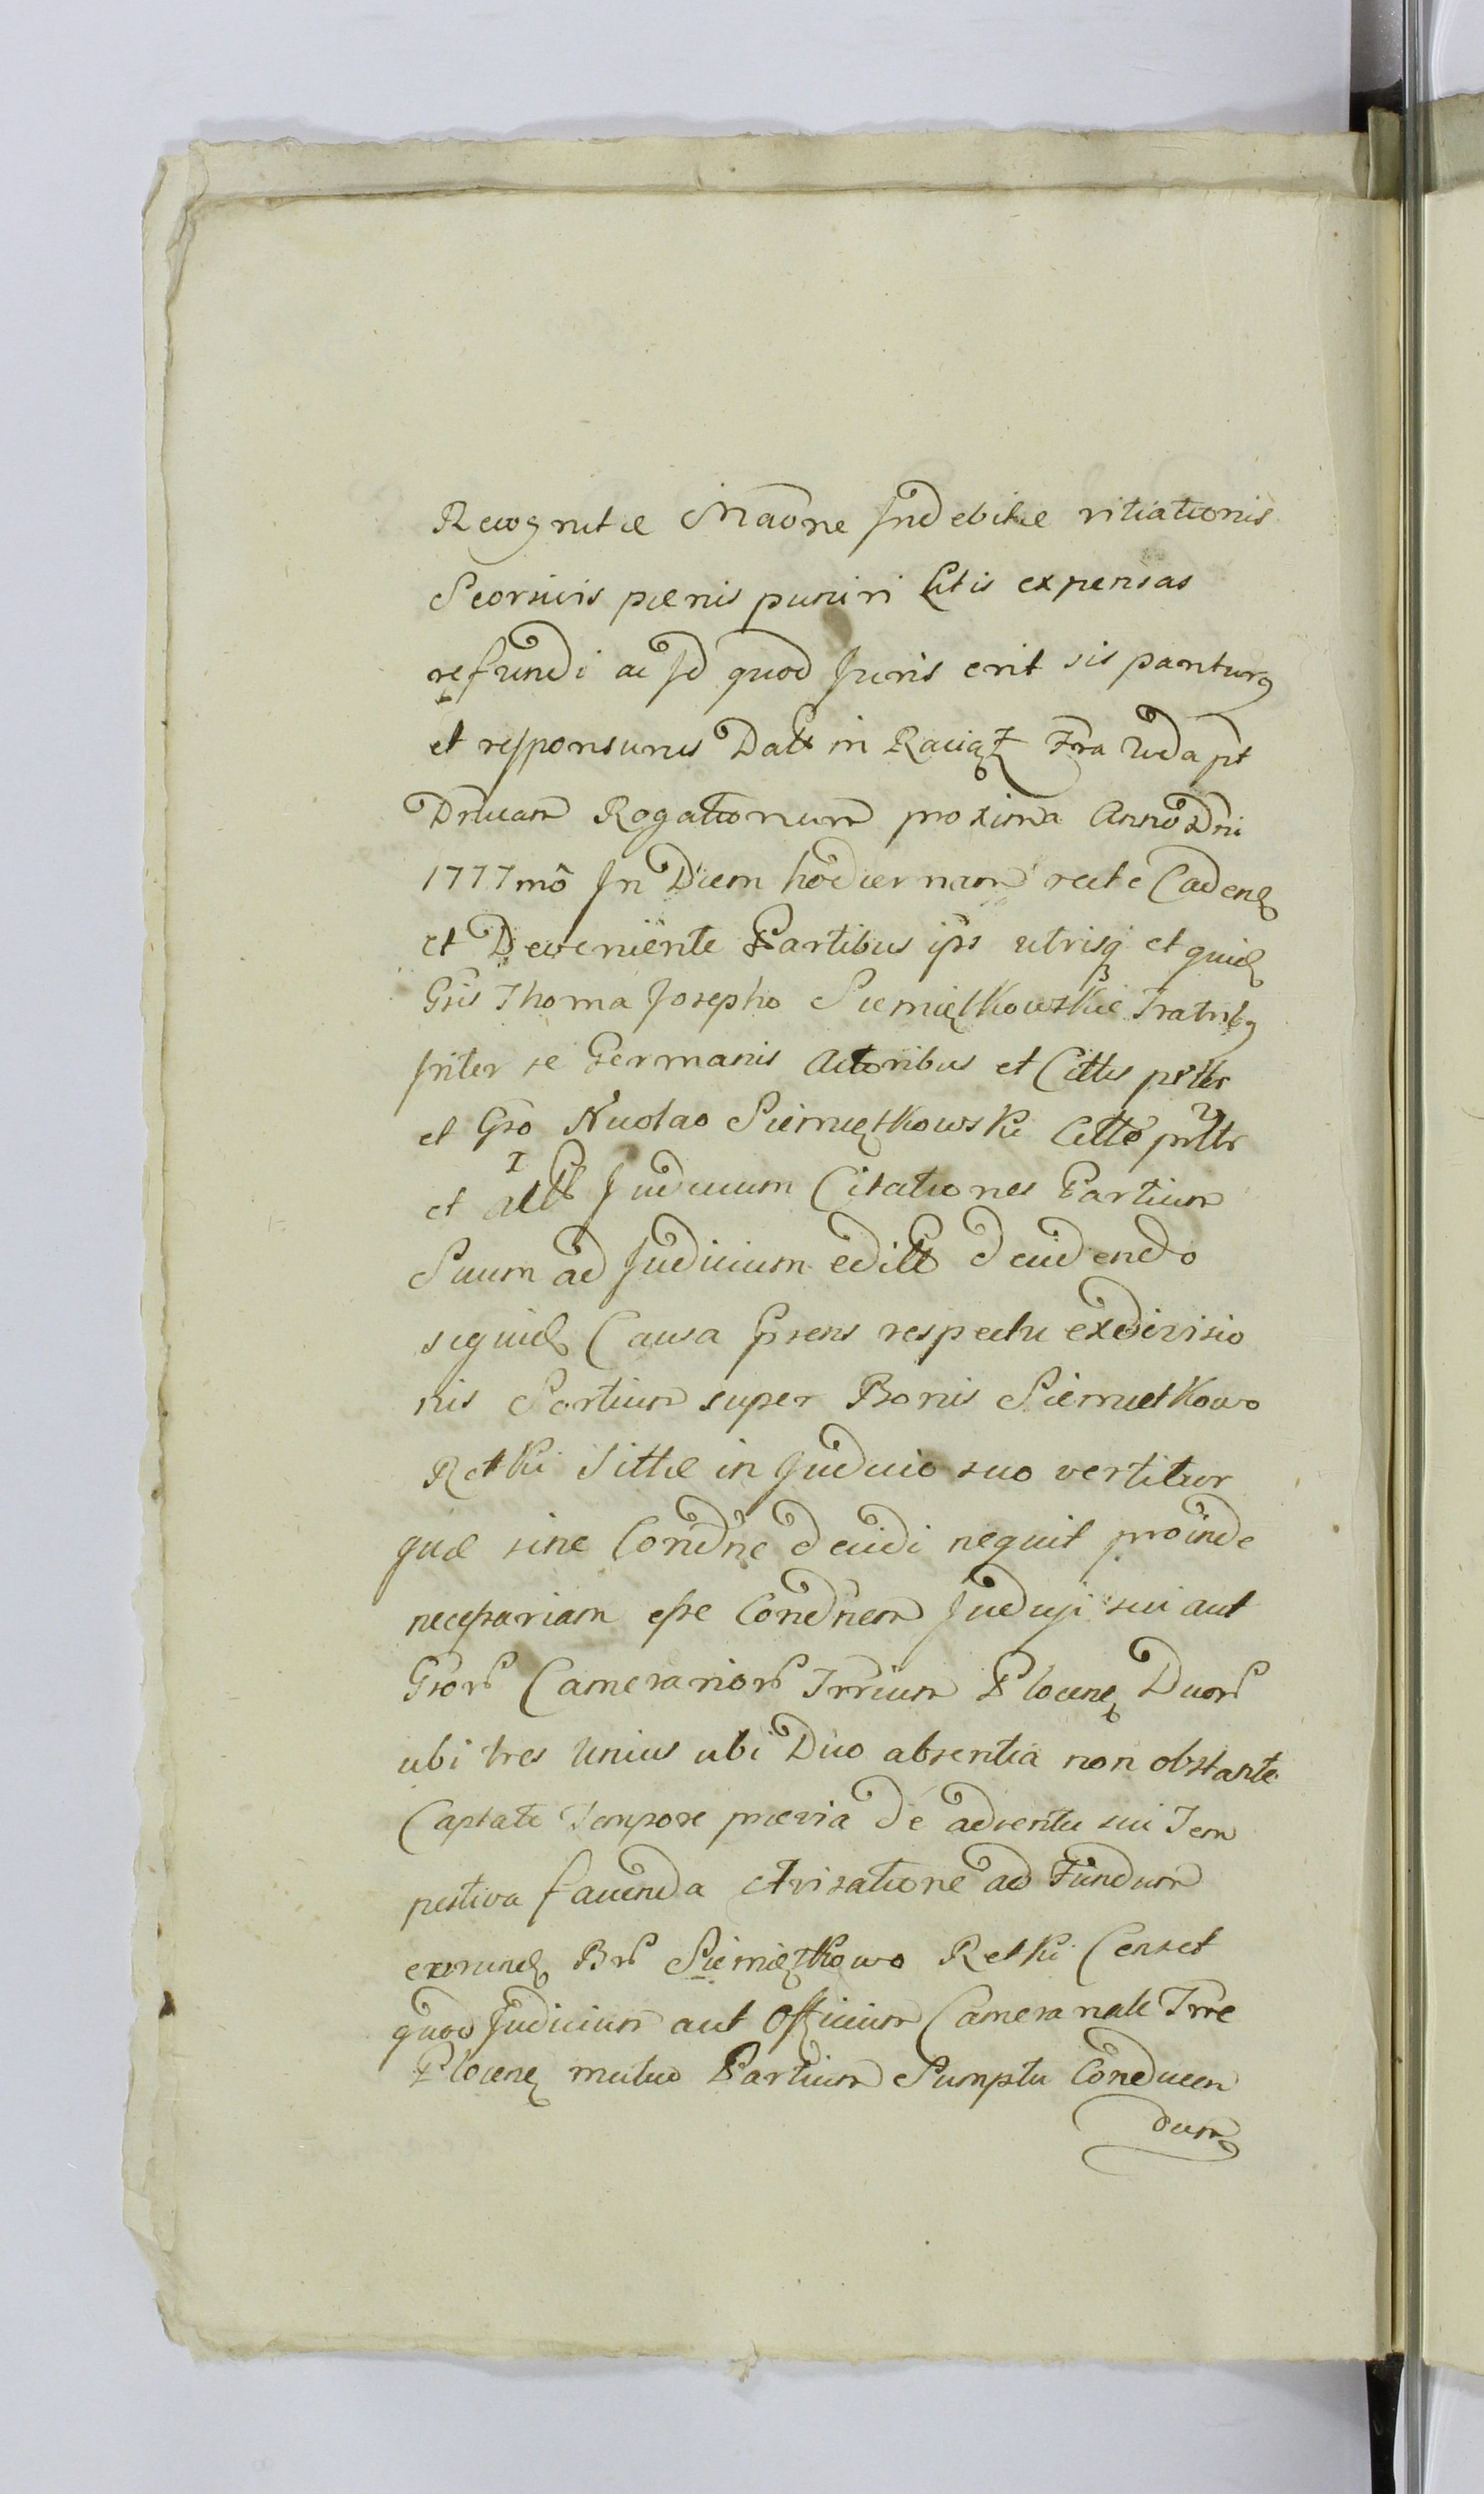 Recognitæ Maõne Indebitæ vitiationis
Seorsivis pænis puniri Litis expensas
refundi ac Id quod Juris erit sis pariturq
et responsurus Datt in Raciąż Fra 2da pt
Dnicam Rogationum proxima Anno Dni
1777mõ In Diem hodiernam recte Caden
et Deveniente Partibus ipis utrisq et quid
Gsis Thoma Josepho Siemiętkowskie Fratribq
Inter se Germanis Actoribus et Cittis prttr
et Gso Nicolao Siemiętkowski Citto prttr
et Actt Judicium Citationes Partium
Suum ad Judicium editt decidendo
siquid Causa Prens respectu exdivisio
nis Sortium super Bonis Siemietkowo
Retki Sittæ in Judicio suo vertitur
quæ sine Condne decidi nequit proinde
necessariam esse Condnem Judicji sui aut
Gsor Camerarior Trrium Plocen Duor
ubi tres Unius ubi Duo absentia non obstante
Captato Tempore prævia de adventu sui Tem
pestiva facienda Avisatione ad Fundum
eorund Br Siemiętkowo Retki Censet
quod Judicium aut Officium Camerariale Trre
Plocen mutuo Partium Sumptu Conducen
dum